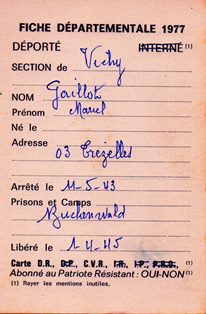 FICHE DÉPARTEMENTALE 1977
DÉPORTÉ INTERNÉ (1)
SECTION de Vichy
NOM Gaillot
Prénom Marcel
Né le
Adresse
03 Trézelles
Arrêté le 11-5-43
Prisons et Camps
Buchenwald
Libéré le 1-4-45
Carte D.R., D.P., C.V.R., I.R., I.P., P.R.O. (1)
Abonné au Patriote Résistant : OUI-NON (1)
(1) Rayer les mentions inutiles.